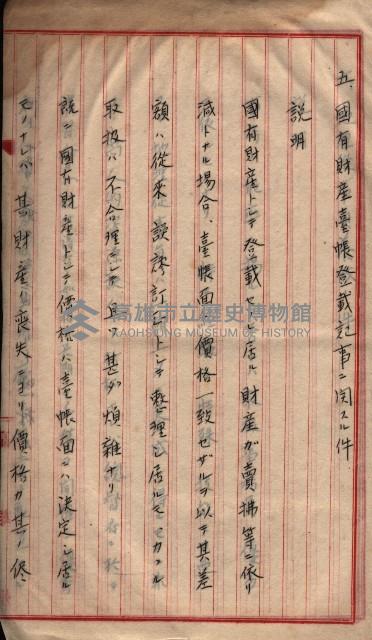 五、國有財產臺帳登載記事ニ関スル件
説明
國有財產トシテ登載セラレ居ル財產ガ賣拂等ニ依リ
減トナル場合、臺帳面ノ價格一致セザルヲ以テ其差
額ハ從來誤謬訂正トシテ整理シ居ルモ、カヽル
取扱ハ不合理ニシテ且、甚ダ煩雜ナリ
既ニ國有財產トシテ價格ハ臺帳面ニハ決定シ居ル
モノナレバ、其ノ財產ノ喪失ニヨリ價格ガ其ノ儘
高雄市立歷史博物館
KAOHSIUNG MUSEUM OF HISTORY